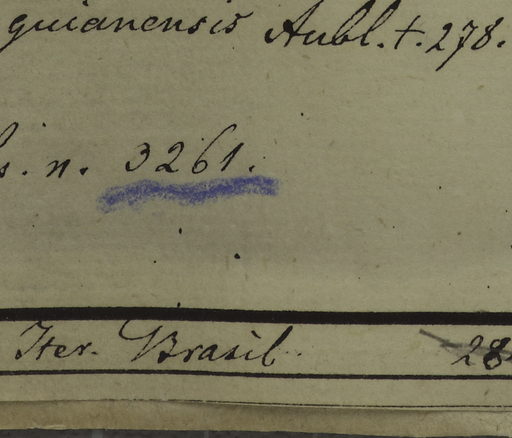 guianensis Aubl. t. 278.
s. n. 3261.
Iter. Brasil. 28